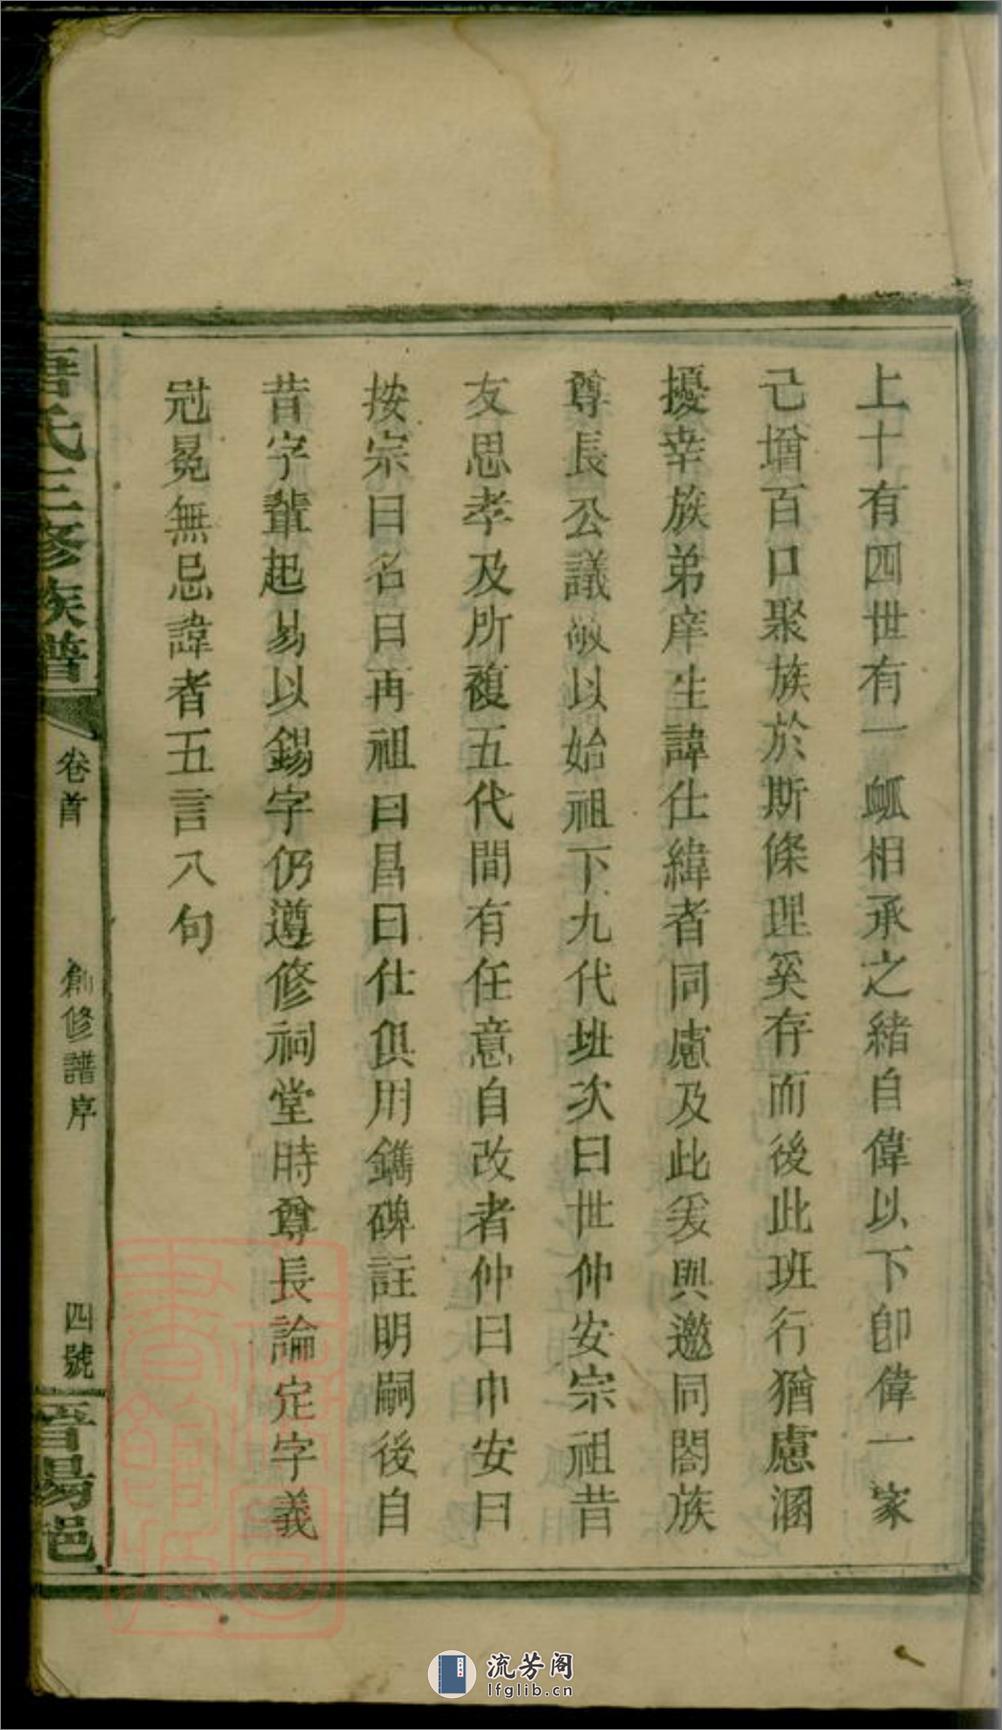 上十有四世有一𧖴相承之緒自偉以下卽偉一家
己增百口聚族於斯條理奚存而後此班行猶慮溷
擾幸族弟庠生諱仕緯者同慮及此爰與邀同閤族
尊長公議做以始祖下九代班次曰世仲安宗祖昔
友思孝及所複五代間有任意自改者仲曰巾安曰
按宗曰名曰再祖曰昌曰仕俱用鐫碑註明嗣後自
昔字輩起易以錫字仍遵修祠堂時尊長論定字義
冠冕無忌諱者五言八句
唐氏三修族譜
卷首
創修譜序
四號
晋陽邑
流芳阁
lfglib.cn